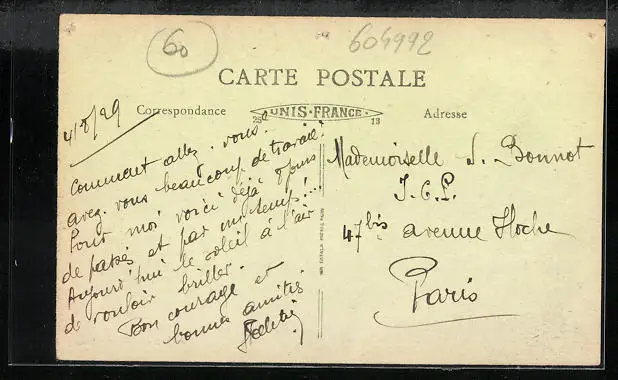 60
604992
CARTE POSTALE
Correspondance
UNIS-FRANCE
25 13
Adresse
4/8/29
Comment allez-vous?
avez-vous beaucoup de travail?
Pour moi voici déjà 8 jours
de passés et par un temps!...
Aujourd'hui le soleil à l'air
de vouloir briller.
Bon courage et
bonne amitié
Mademoiselle S. Bonnot
J.C.P.
47bis avenue Hoche
Paris